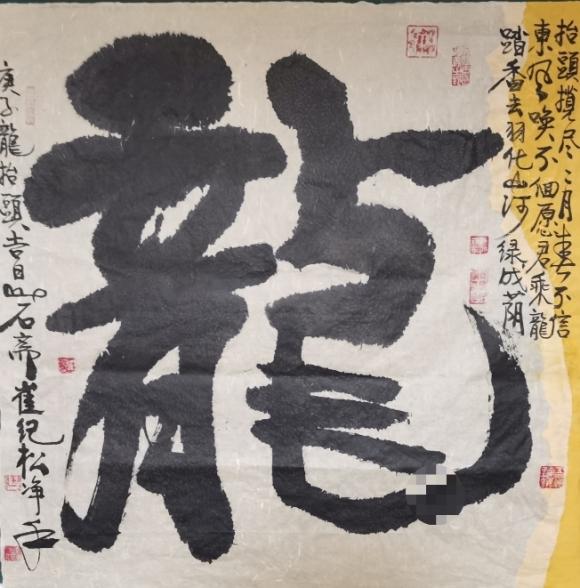 抬頭攬尽二月春不信
東风唤不個愿君乘龍
踏香去羽化山河绿成荫
龍
庚子龍抬頭吉日山石齋崔纪松净手